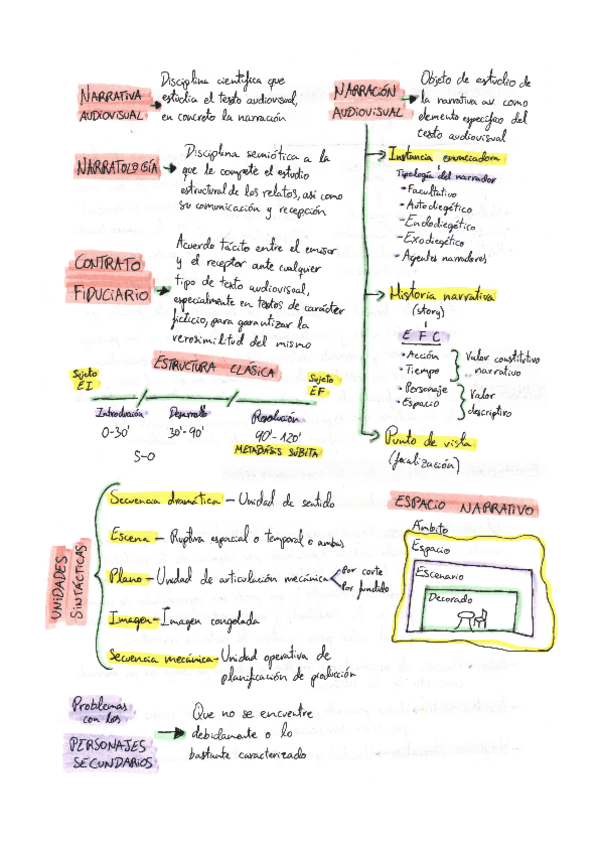 NARRATIVA
AUDIOVISUAL
Disciplina científica que
estudia el texto audiovisual,
en concreto la narración
NARRATOLOGÍA
Disciplina semiótica a la
que le compete el estudio
estructural de los relatos, así como
su comunicación y recepción
CONTRATO
FIDUCIARIO
Acuerdo tácito entre el emisor
y el receptor ante cualquier
tipo de texto audiovisual,
especialmente en textos de carácter
ficticio, para garantizar la
verosimilitud del mismo
ESTRUCTURA CLÁSICA
Sujeto
EI
Sujeto
EF
Introducción
Desarrollo
Resolución
0-30'
30'-90'
90'-120'
METÁBASIS SÚBITA
S-O
NARRACIÓN
AUDIOVISUAL
Objeto de estudio de
la narrativa av como
elemento específico del
texto audiovisual
Instancia enunciadora
Tipología del narrador
- Facultativo
- Autodiegético
- Endodiegético
- Exodiegético
- Agentes narradores
Historia narrativa
(story)
E F C
• Acción
• Tiempo
Valor constitutivo
narrativo
• Personaje
• Espacio
Valor
descriptivo
Punto de vista
(focalización)
UNIDADES
SINTÁCTICAS
Secuencia dramática - Unidad de sentido
Escena - Ruptura espacial o temporal o ambas
Plano - Unidad de articulación mecánica
Por corte
Por fundido
Imagen - Imagen congelada
Secuencia mecánica - Unidad operativa de
planificación de producción
ESPACIO NARRATIVO
Ámbito
Espacio
Escenario
Decorado
Problemas
con los
PERSONAJES
SECUNDARIOS
Que no se encuentre
debidamente o lo
bastante caracterizado